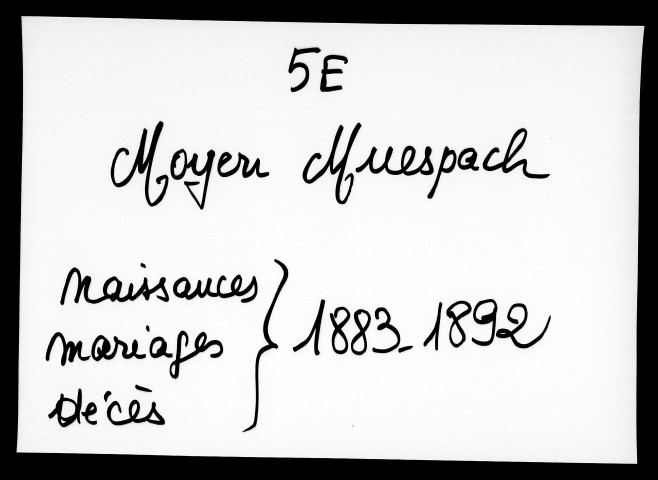 5E
Moyen Muespach
naissances
mariages } 1883-1892
décès